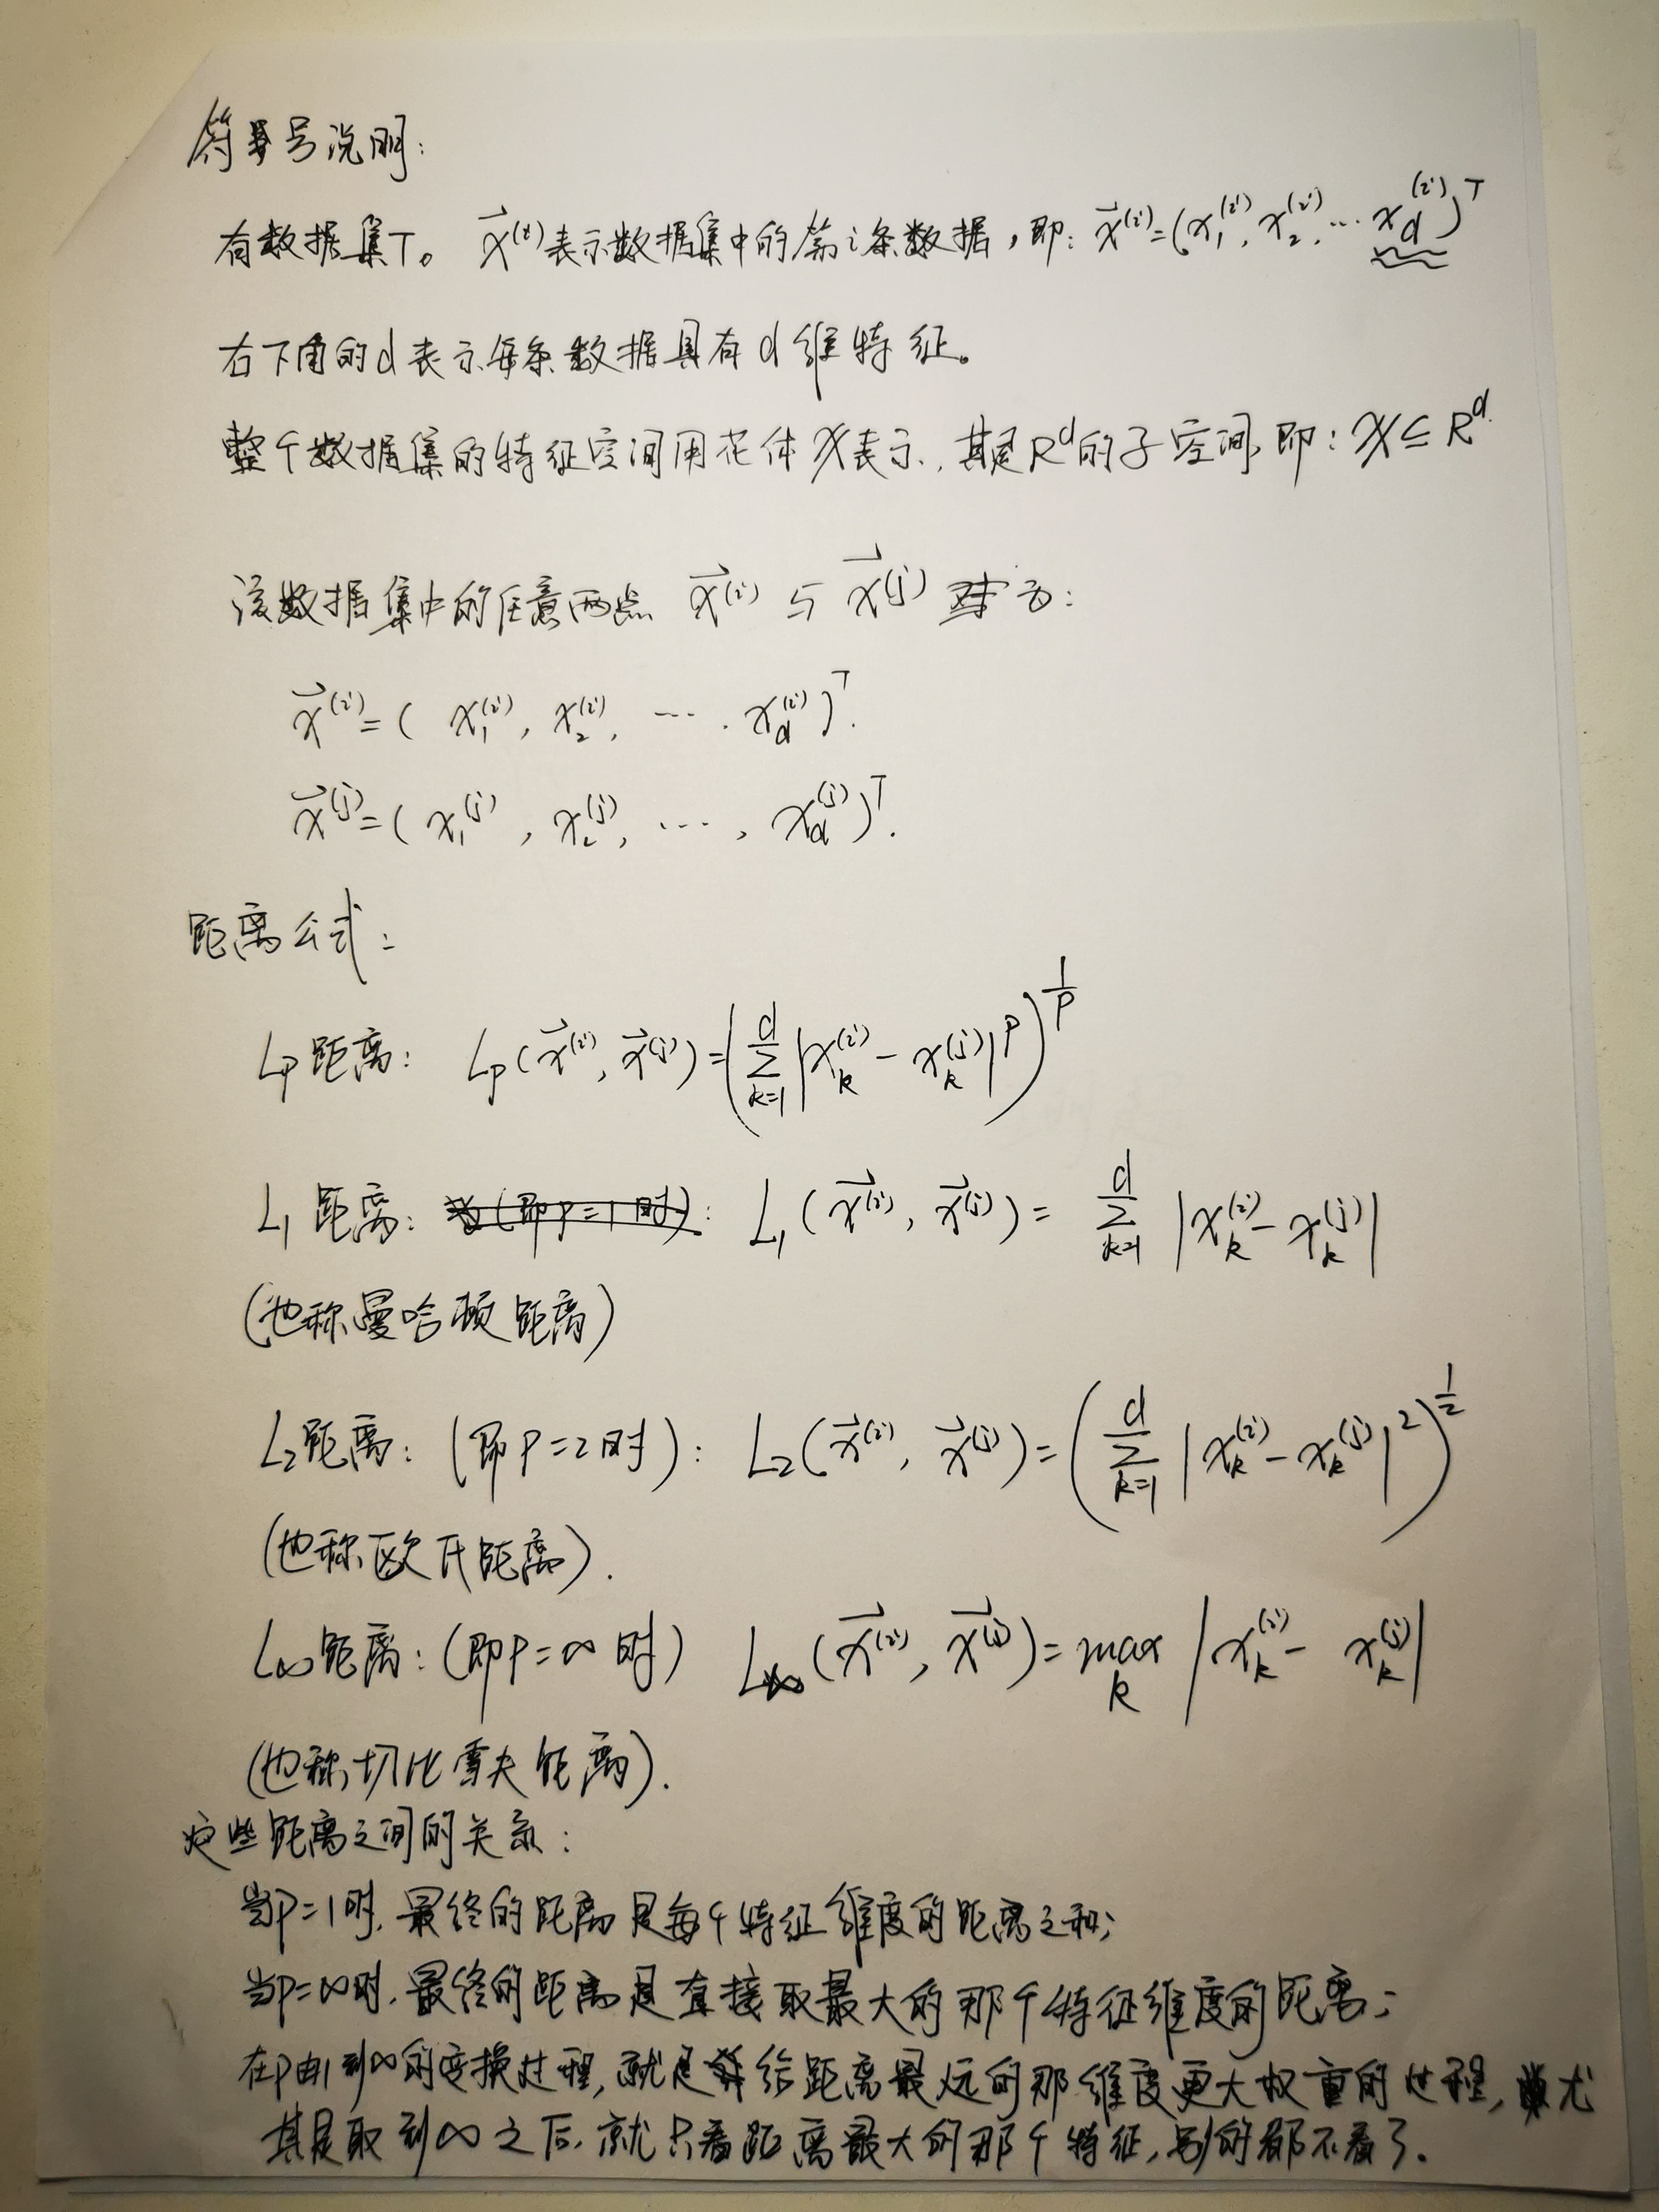 符号说明:
有数据集T。 x⃗⁽ⁱ⁾表示数据集中的第i条数据,即: x⃗⁽ⁱ⁾=(x₁⁽ⁱ⁾, x₂⁽ⁱ⁾, ... x_d⁽ⁱ⁾)ᵀ
右下角的d表示每条数据具有d维特征。
整个数据集的特征空间用花体𝒳表示,其是R^d的子空间,即: 𝒳⊆R^d.
该数据集中的任意两点 x⃗⁽ⁱ⁾与x⃗⁽ʲ⁾ 为:
x⃗⁽ⁱ⁾=( x₁⁽ⁱ⁾, x₂⁽ⁱ⁾, ... . x_d⁽ⁱ⁾)ᵀ.
x⃗⁽ʲ⁾=( x₁⁽ʲ⁾, x₂⁽ʲ⁾, ..., x_d⁽ʲ⁾)ᵀ.
距离公式:
Lp距离: Lp(x⃗⁽ⁱ⁾, x⃗⁽ʲ⁾)=(∑_{k=1}^{d}|x_k⁽ⁱ⁾-x_k⁽ʲ⁾|^p)^{1/p}
L₁距离: (即p=1时): L₁(x⃗⁽ⁱ⁾, x⃗⁽ʲ⁾)= ∑_{k=1}^{d}|x_k⁽ⁱ⁾-x_k⁽ʲ⁾|
(也称曼哈顿距离)
L₂距离: (即p=2时): L₂(x⃗⁽ⁱ⁾, x⃗⁽ʲ⁾)=(∑_{k=1}^{d}|x_k⁽ⁱ⁾-x_k⁽ʲ⁾|²)^{1/2}
(也称欧氏距离).
L∞距离: (即p=∞时) L∞(x⃗⁽ⁱ⁾, x⃗⁽ʲ⁾)=max_k |x_k⁽ⁱ⁾-x_k⁽ʲ⁾|
(也称切比雪夫距离).
这些距离之间的关系:
当p=1时,最终的距离是每个特征维度的距离之和;
当p=∞时,最终的距离是直接取最大的那个特征维度的距离;
在p由1到∞的变换过程,就是给距离最远的那维度更大权重的过程,尤
其是取到∞之后,就只看距离最大的那个特征,别的都不看了.